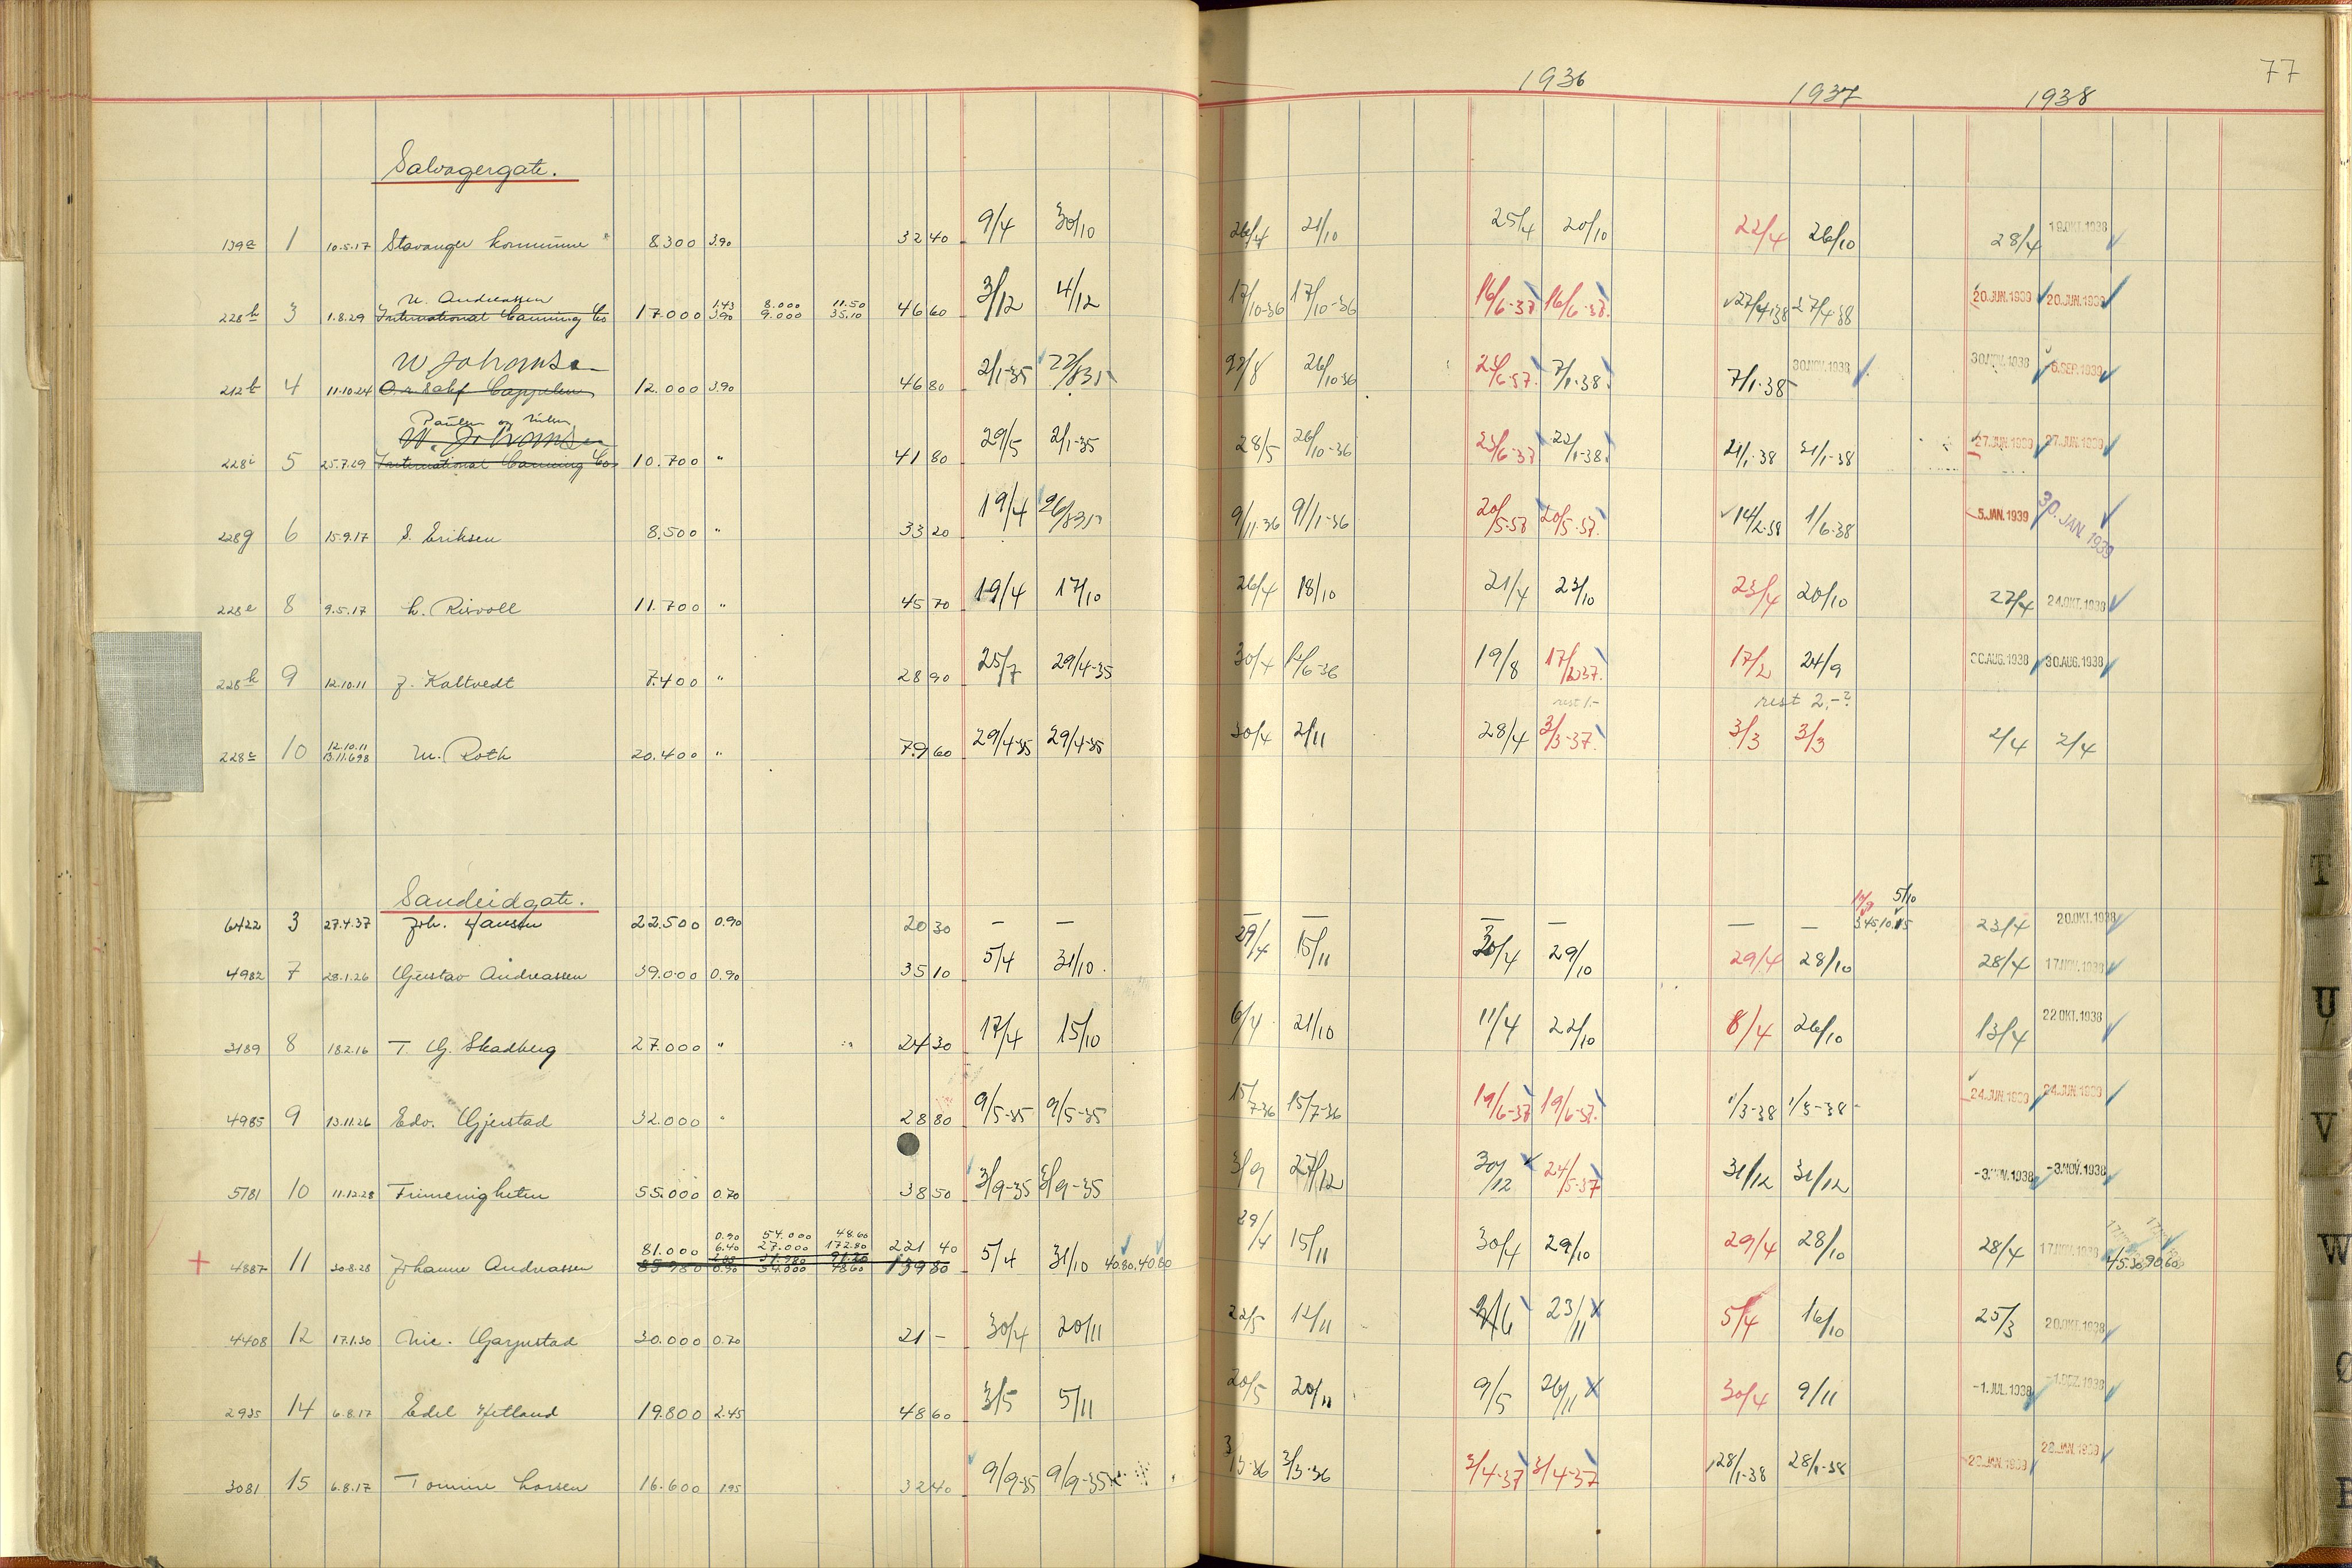 77
1936 1937 1938
Salvagergate.
139a 1 10.5.17 Stavanger kommune 8300 3.90 32 40 9/4 30/10 26/4 21/10 25/4 20/10 22/4 26/10 28/4 19.OKT.1938
M. Andreassen 1.43 8.000 11.50
228h 3 1.8.29 International Canning Co 17.000 3.90 9.000 35.10 46 60 3/12 4/12 17/10-36 17/10-36 16/6-37 16/6-37. 27/4-38 27/4-38 20.JUN.1939 20.JUN.1939
W Johannsen
212b 4 11.10.24 Cappelen 12.000 3.90 46 80 2/1-35 22/8 26/10-36 7/1-38 7/1-38 30.NOV.1938 30.NOV.1938 6.SEP.1939
W. Johannsen
228i 5 25.7.29 International Canning Co 10.700 " 41 80 29/5 2/1-35 28/5 26/10-36 23/6-37 22/1-38. 21/1-38 21/1-38 27.JUN.1939 27.JUN.1939
228g 6 15.9.17 S. Eriksen 8.500 " 33 20 19/4 9/11-36 9/11-36 20/5-37 20/5-37. 14/2-38 1/6-38 5.JAN.1939 30.JAN.1939
228e 8 9.5.17 L. Risvoll 11.700 " 45 70 19/4 17/10 26/4 18/10 21/4 23/10 23/4 20/10 27/4 24.OKT.1938
9 12.10.11 J. Kaltvedt 7.400 " 28 90 25/7 29/4-35 30/4 19/8 17/2-37. 17/2 24/9 30.AUG.1938 30.AUG.1938
rest 1.- rest 2.-?
12.10.11
228c 10 13.11.698 M. Roth 20.400 " 79 60 29/4-35 29/4-35 30/4 2/11 28/4 3/3-37. 3/3 3/3 2/4 2/4
Sandeidgate.
5/10
6422 3 27.4.37 Joh. Hansen 22.500 0.90 20 30 — — — — — — — — 3.45 10.15 23/4 20.OKT.1938
4982 7 28.1.26 Gustav Andreassen 39.000 0.90 35 10 5/4 31/10. 29/4 15/11 30/4 29/10 29/4 28/10 28/4 17.NOV.1938
3189 8 18.2.16 T. G. Skadberg 27.000 " 24 30 17/4 15/10 6/4 21/10 11/4 22/10 8/4 26/10 13/4 22 OKT.1938
4985 9 13.11.26 Edv. Gjerstad 32.000 " 28 80 9/5-35 9/5-35 15/7-36 15/7-36 19/6-37 19/6-37. 1/3-38 1/3-38 24.JUN.1939 24.JUN.1939
5781 10 11.12.28 Frimenigheten 55.000 0.70 38 50 3/9-35 3/9-35 3/9 27/12 30/12 24/5-37 31/12 31/12 -3.NOV.1938 -3.NOV.1938
0.90 54.000 48.60
81.000 6.40 27.000 172.80 221 40
4887 11 30.8.28 Johanne Andreassen 85980 0.90 54.000 48.60 139 80 5/4 31/10 40.80. 40 80 29/4 15/11 30/4 29/10 29/4 28/10 28/4 17.NOV.1938 45.30 90.60
4408 12 17.1.30 Nic. Garpestad 30.000 0.70 21 - 30/4 20/11 22/5 12/11 23/11 5/4 16/10 25/3 20.OKT.1938
2935 14 6.8.17 Edel Hetland 19.800 2.45 48 60 3/5 5/11 20/5 20/11 9/5 26/11 30/4 9/11 -1.JUL.1938 -1.DEZ.1938
3081 15 6.8.17 Tomine Larsen 16.600 1.95 32 40 9/9-35 9/9-35 3/3-36 3/3-36 3/4-37 3/4-37 28/1-38 28/1-38 28.JAN.1939 28.JAN.1939
T
U
V
W